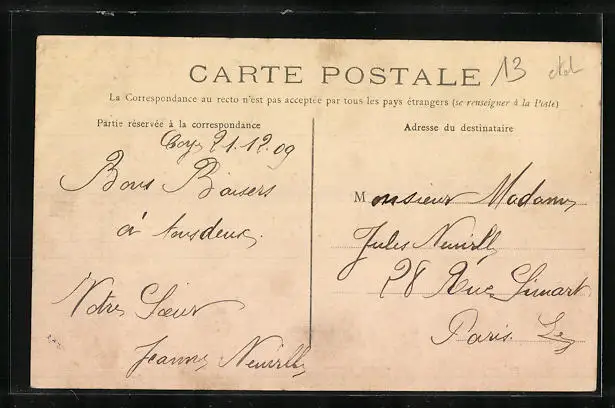 CARTE POSTALE 13
La Correspondance au recto n'est pas acceptée par tous les pays étrangers (se renseigner à la Poste)
Partie réservée à la correspondance
21.12.09
Bons Baisers
à tous deux.
Votre Sœur
Jeanne Neuville
Adresse du destinataire
Monsieur Madame
Jules Neuville
28 Rue Simart
Paris.